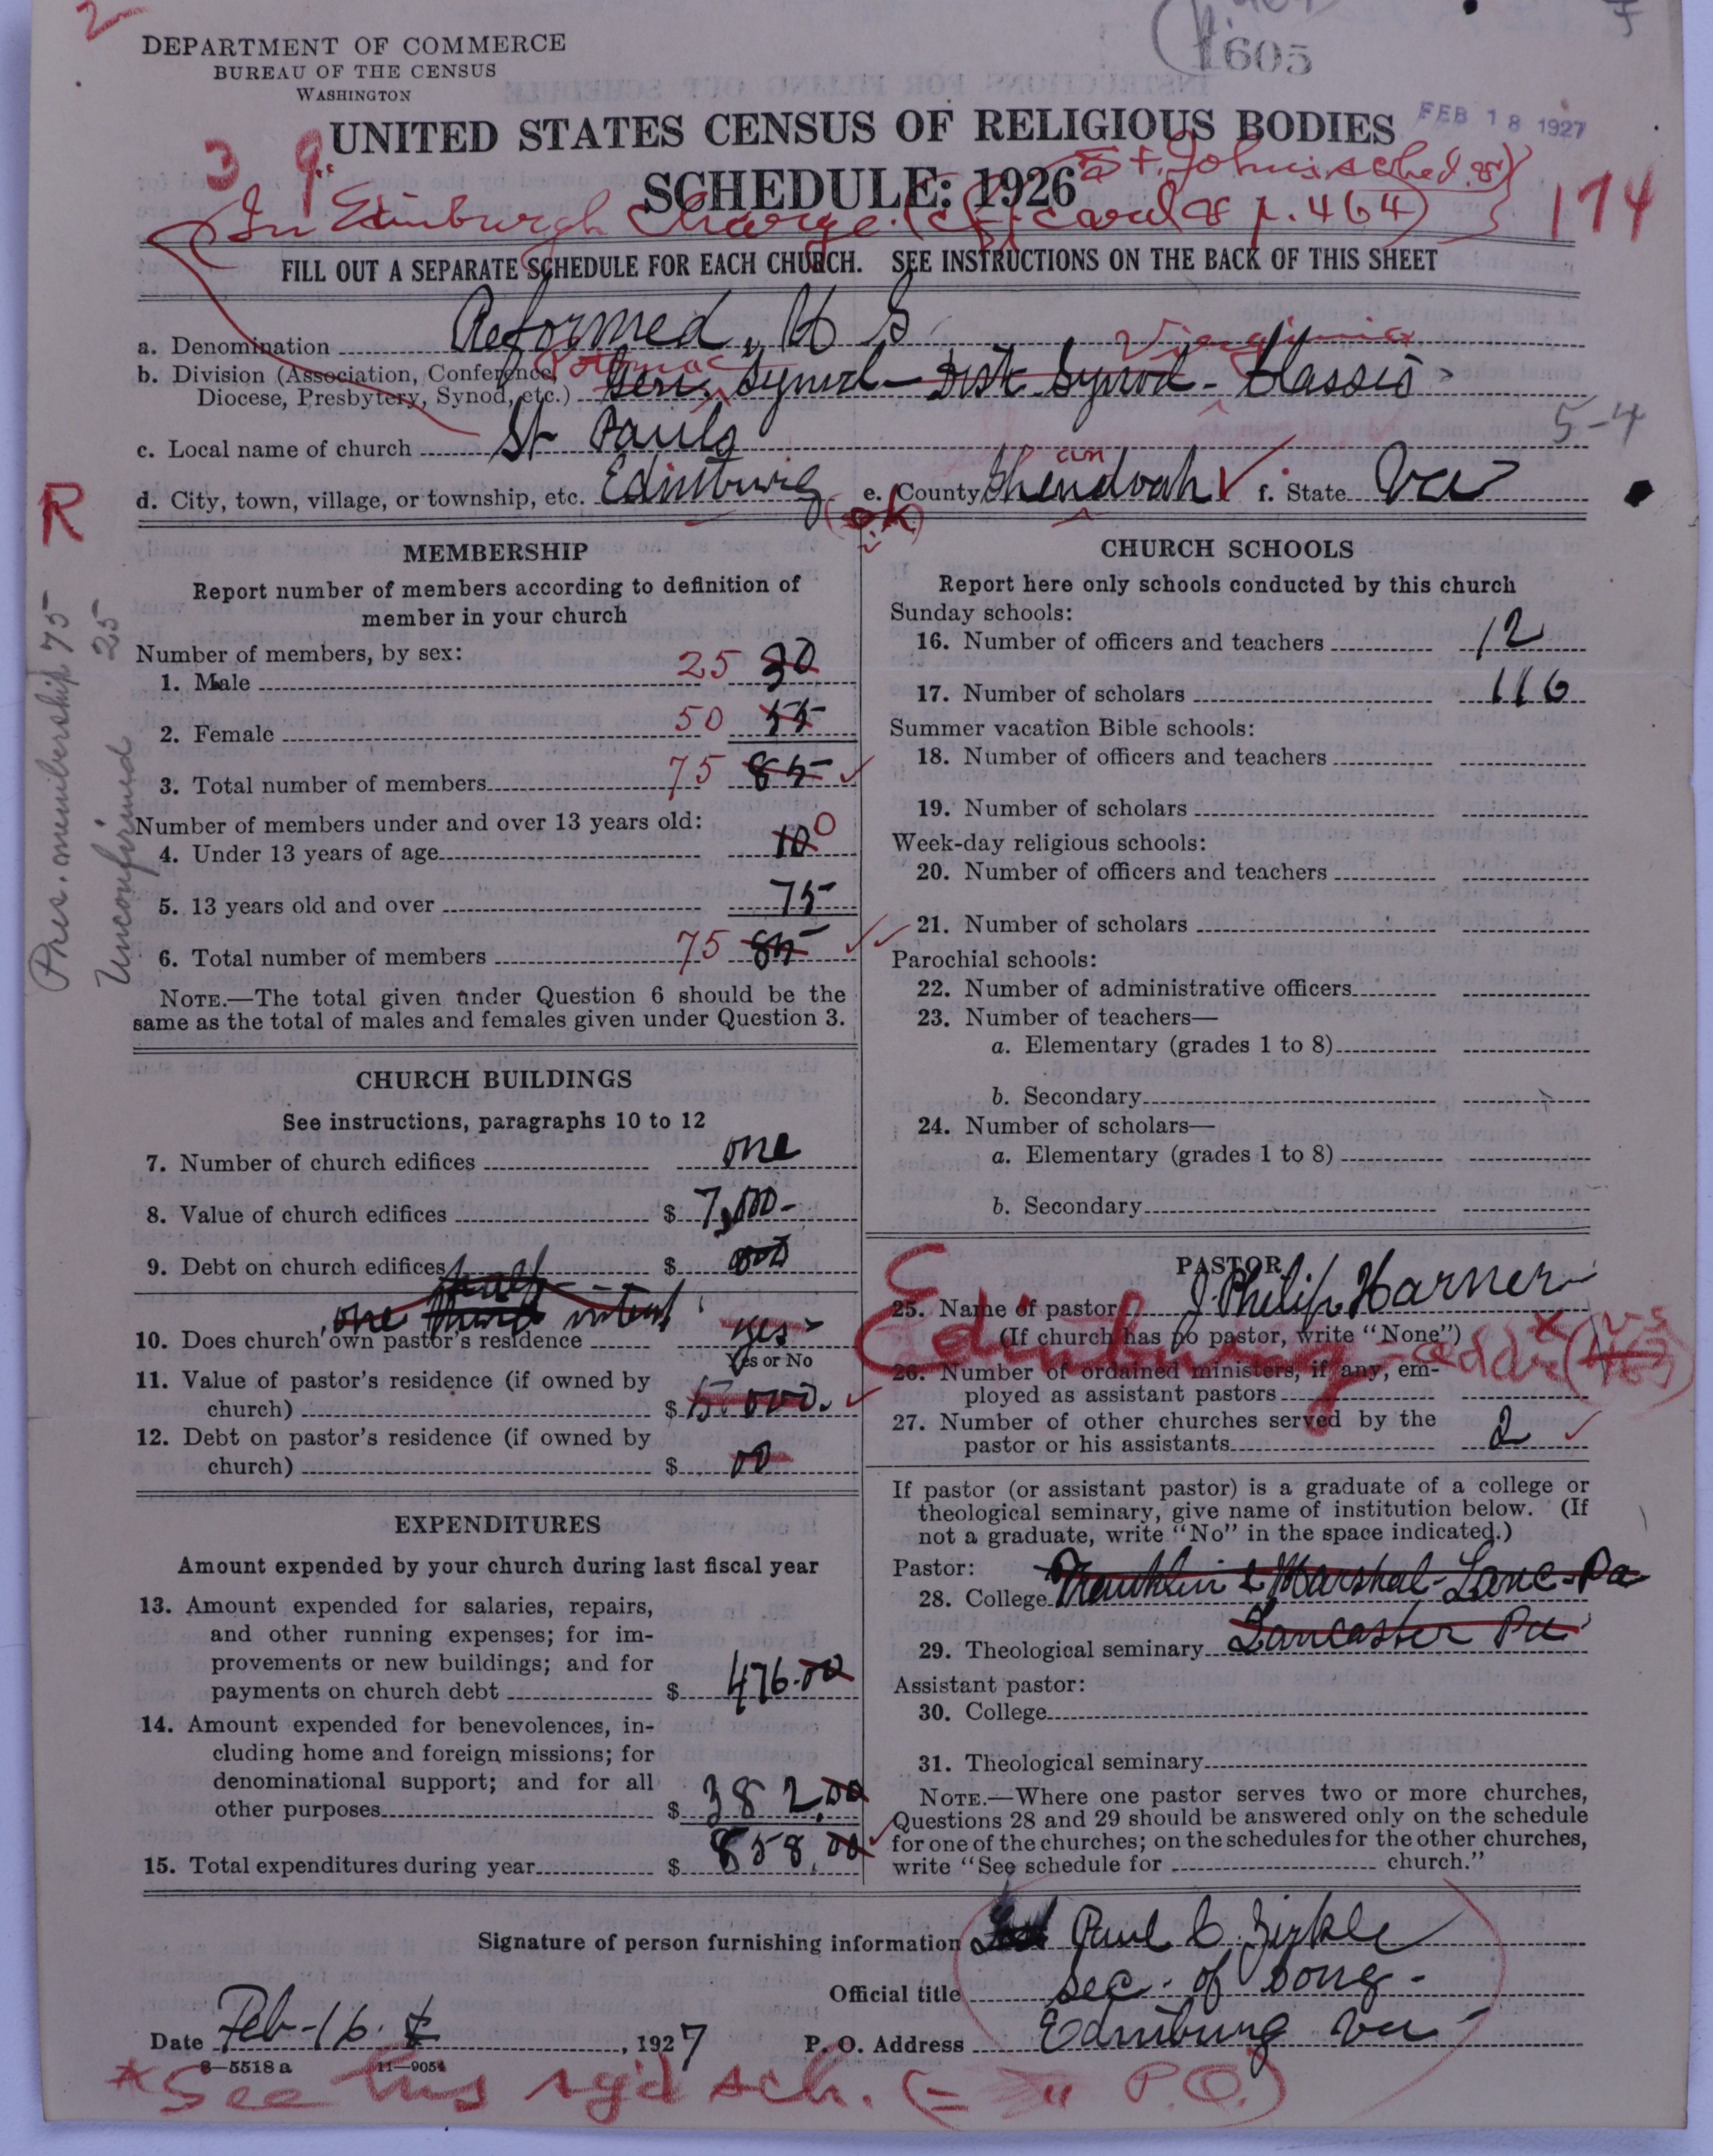 2
1605
DEPARTMENT OF COMMERCE
BUREAU OF THE CENSUS
WASHINGTON
UNITED STATES CENSUS OF RELIGIOUS BODIES
FEB 18 1927
SCHEDULE: 1926
3 9
St. John's sched. 174
In Edinburgh Charge. (cf. card & p. 464)
FILL OUT A SEPARATE SCHEDULE FOR EACH CHURCH. SEE INSTRUCTIONS ON THE BACK OF THIS SHEET
a. Denomination Reformed, U S
Potomac Virginia
b. Division (Association, Conference, Diocese, Presbytery, Synod, etc.) Gen. Synod - Dist Synod - Classis
5-4
c. Local name of church St Pauls
d. City, town, village, or township, etc. Edinburg e. County Shendoah an f. State Va
(ok)
R
Pres. membership 75
Unconfirmed 25
MEMBERSHIP
Report number of members according to definition of
member in your church
Number of members, by sex:
1. Male 25 30
2. Female 50 55
3. Total number of members 75 85
Number of members under and over 13 years old:
4. Under 13 years of age 10 0
5. 13 years old and over 75
6. Total number of members 75 85
NOTE.—The total given under Question 6 should be the
same as the total of males and females given under Question 3.
CHURCH BUILDINGS
See instructions, paragraphs 10 to 12
7. Number of church edifices one
8. Value of church edifices $ 7,000-
9. Debt on church edifices $ 000
one third half intrest
10. Does church own pastor's residence yes
Yes or No
11. Value of pastor's residence (if owned by
church) $
12. Debt on pastor's residence (if owned by
church) $ 00
EXPENDITURES
Amount expended by your church during last fiscal year
13. Amount expended for salaries, repairs,
and other running expenses; for im-
provements or new buildings; and for
payments on church debt $ 476.00
14. Amount expended for benevolences, in-
cluding home and foreign missions; for
denominational support; and for all
other purposes $ 382.00
15. Total expenditures during year $ 858.00
CHURCH SCHOOLS
Report here only schools conducted by this church
Sunday schools:
16. Number of officers and teachers 12
17. Number of scholars 116
Summer vacation Bible schools:
18. Number of officers and teachers
19. Number of scholars
Week-day religious schools:
20. Number of officers and teachers
21. Number of scholars
Parochial schools:
22. Number of administrative officers
23. Number of teachers—
a. Elementary (grades 1 to 8)
b. Secondary
24. Number of scholars—
a. Elementary (grades 1 to 8)
b. Secondary
PASTOR
25. Name of pastor J. Philip Harner
(If church has no pastor, write "None")
Edinburg - addr
26. Number of ordained ministers, if any, em-
ployed as assistant pastors
27. Number of other churches served by the
pastor or his assistants 2
If pastor (or assistant pastor) is a graduate of a college or
theological seminary, give name of institution below. (If
not a graduate, write "No" in the space indicated.)
Pastor:
28. College Franklin & Marshal - Lanc - Pa
29. Theological seminary Lancaster Pa
Assistant pastor:
30. College
31. Theological seminary
NOTE.—Where one pastor serves two or more churches,
Questions 28 and 29 should be answered only on the schedule
for one of the churches; on the schedules for the other churches,
write "See schedule for church."
Signature of person furnishing information Paul C. Zirkle
Official title Sec. of Cong.
Date Feb-16. , 1927 P. O. Address Edinburg Va
8—5518 a 11—9054
* See his sg'd sch. (= " P.O.)